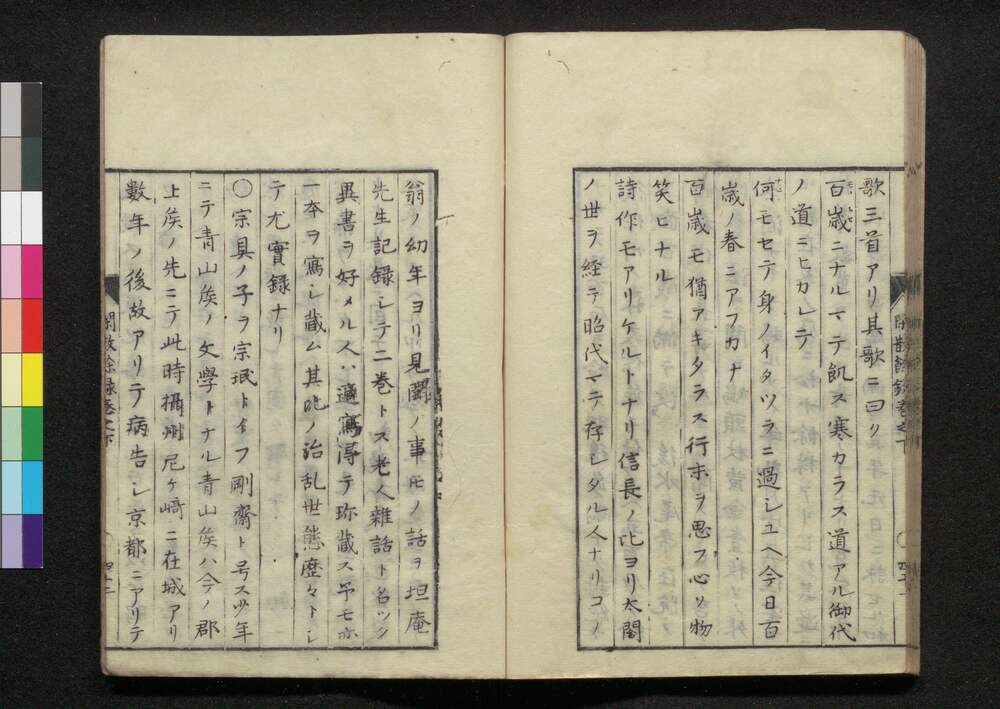 歌三首アリ其歌ニ曰ク
百歳ニナルマテ飢ス寒カラス道アル御代
ノ道ニヒカレテ
何モセテ身ノイタツラニ過シユヘ今日百
歳ノ春ニアフカナ
百歳モ猶アキタラス行末ヲ思フ心ソ物
笑ヒナル
詩作モアリケルトナリ信長ノ比ヨリ太閤
ノ世ヲ経テ昭代マテ存シタル人ナリコノ
翁ノ幼年ヨリ見聞ノ事𪜈ノ話ヲ坦庵
先生記録シテ二巻トス老人雜話ト名ツク
異書ヲ好メル人ハ適寫得テ珎藏ス予モ亦
一本ヲ寫シ藏ム其比ノ治乱世態歴々トシ
テ尤實録ナリ
〇宗具ノ子ヲ宗珉ト云フ剛齋ト号ス少年
ニテ青山矦ノ文學トナル青山矦ハ今ノ郡
上矦ノ先ニテ此時攝州尼ヶ﨑ニ在城アリ
数年ノ後故アリテ病告シ京都ニアリテ